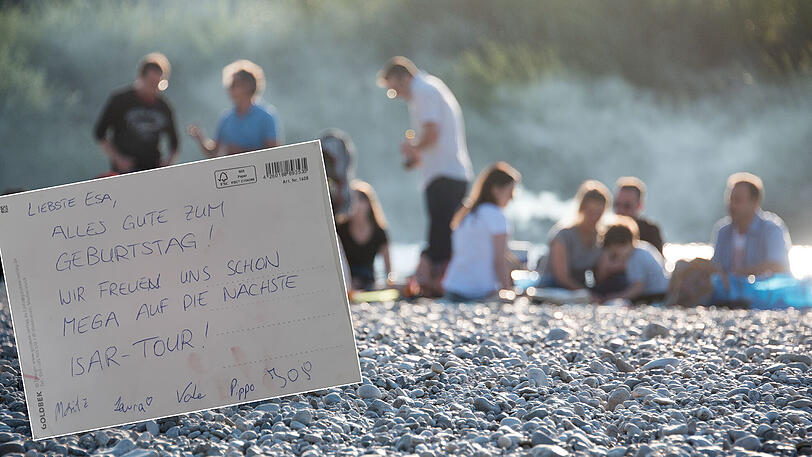 LIEBSTE ESA,
ALLES GUTE ZUM
GEBURTSTAG!
WIR FREUEN UNS SCHON
MEGA AUF DIE NÄCHSTE
ISAR-TOUR!
Moritz Laura Vale Pippo
FSC MIX
Paper
Art. Nr. 1628
GOLDBEK